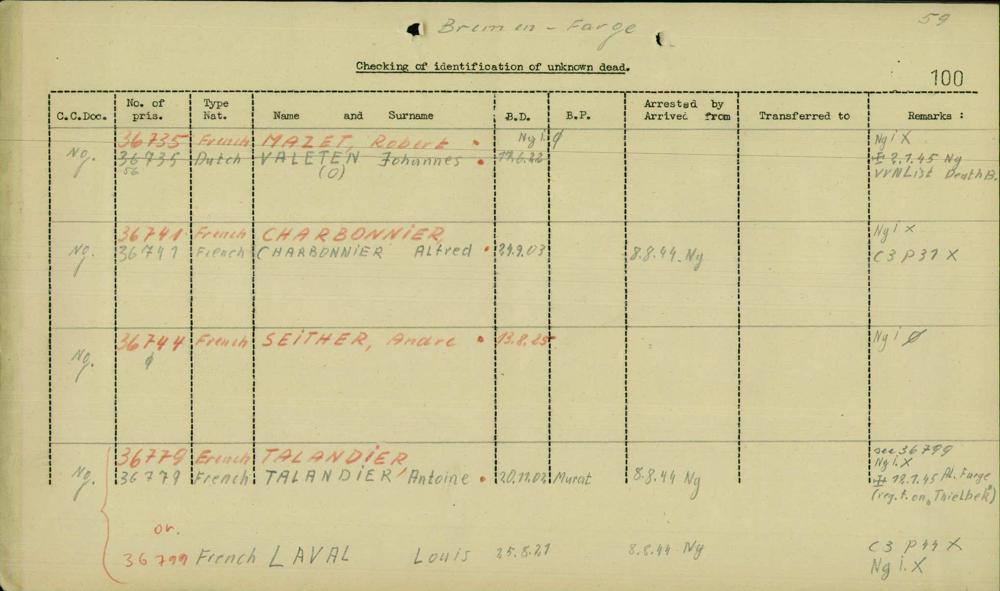 59
Bremen - Farge
Checking of identification of unknown dead.
100
C.C.Doc. No. of pris. Type Nat. Name and Surname B.D. B.P. Arrested by Arrived from Transferred to Remarks :
36735 French MAZET, Robert • Ng i. ∅ Ng i X
Ng. 36735 Dutch VALETEN Johannes • ‡ 2.1.45 Ng
56 (O) VVN List Death B.
36741 French CHARBONNIER, Ng i X
Ng. 36741 French CHARBONNIER Alfred • 8.8.44 Ng C3 P
36744 French SEITHER, Andre • 13.8.25 Ng i ∅
Ng. ∅
36779 French TALANDIER see 36799
Ng i. X
Ng. 36779 French TALANDIER, Antoine • 20.11.02 Murat 8.8.44 Ng Farge
(reg. f. on "Thielbek")
or.
36799 French LAVAL Louis 8.8.44 Ng C3 P 44 X
Ng i. X